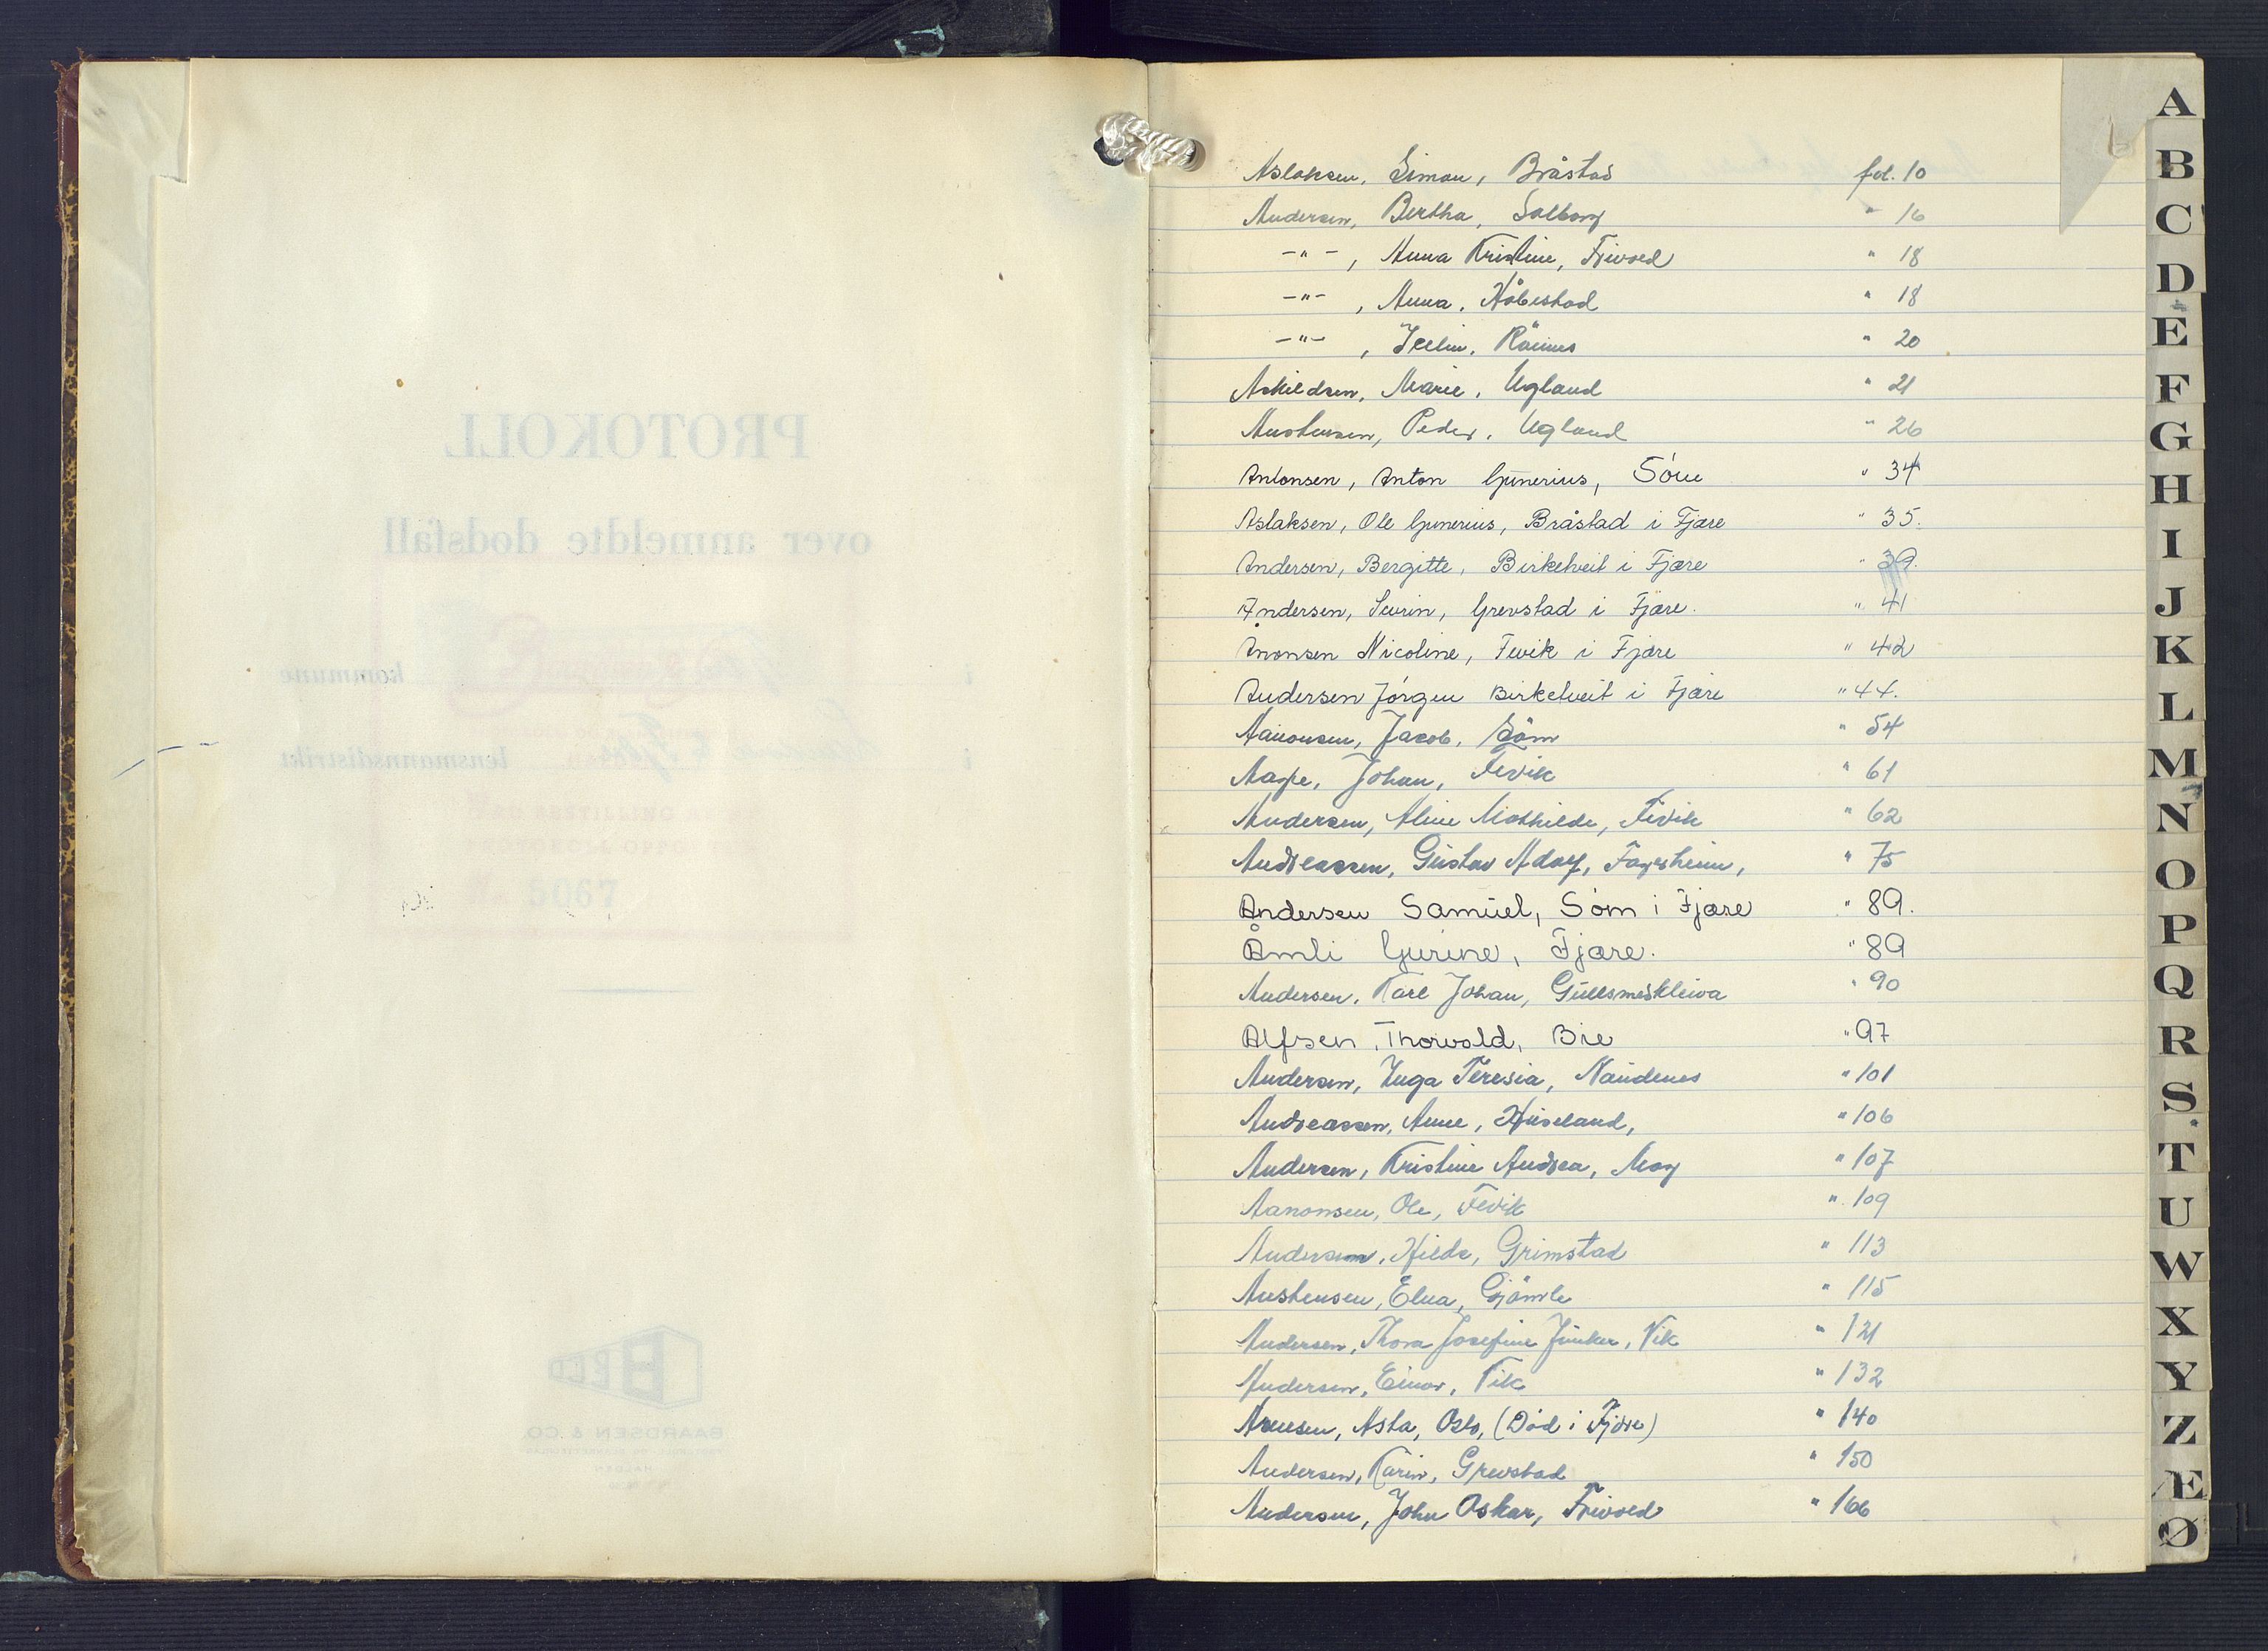 PROTOKOLL
over anmeldte dødsfall
i kommune
i lensmannsdistrikt
5067
BAARDSEN & CO.
HALDEN
Aslaksen, Simon, Bråstad fol. 10
Andersen, Bertha, Solborg " 16
-"-, Anna Kristine, Frivold " 18
-"-, Anna, Håbestad " 18
-"-, Rönnes " 20
Askildsen, Marie, Ugland " 21
Austensen, Peder, Ugland " 26
Antonsen, Anton Gunerius, Söm " 34
Aslaksen, Ole Gunerius, Bråstad i Fjære " 35.
Andersen, Bergitte, Birketveit i Fjære " 39.
Andersen, Sevrin, Grevstad i Fjære. " 41
Ånonsen Nicoline, Fevik i Fjære " 42
Andersen Jörgen Birketveit i Fjære " 44.
Aanonsen, Jacob, Söm " 54
Aagre, Johan, Fevik " 61
Andersen, Aline Mathilde, Fevik " 62
Andreassen, Gustav Adolf, Fagerheim, " 75
Andersen Samuel, Söm i Fjære " 89.
Åmli Gurine, Fjære. " 89
Andersen, Karl Johan, Gullsmedkleiva " 90
Alfsen, Thorvald, Bie " 97
Andersen, Inga Teresia, Naudenes " 101
Andreassen, Anne, Huseland, " 106
Andersen, Kristine Andrea, Moy " 107
Aanonsen, Ole, Fevik " 109
Andersen, Hilda, Grimstad " 113
Austensen, Elna, Gjömle " 115
Andersen, Thora Josefine Junker, Vik " 121
Andersen, Einar, Vik " 132
Arensen, Asta, Oslo, (Död i Fjære) " 140
Andersen, Karin, Grevstad " 150
Andersen, John Oskar, Frivold " 166
A
B
C
D
E
F
G
H
I
J
K
L
M
N
O
P
Q
R
S
T
U
W
X
Y
Z
Æ
Ø